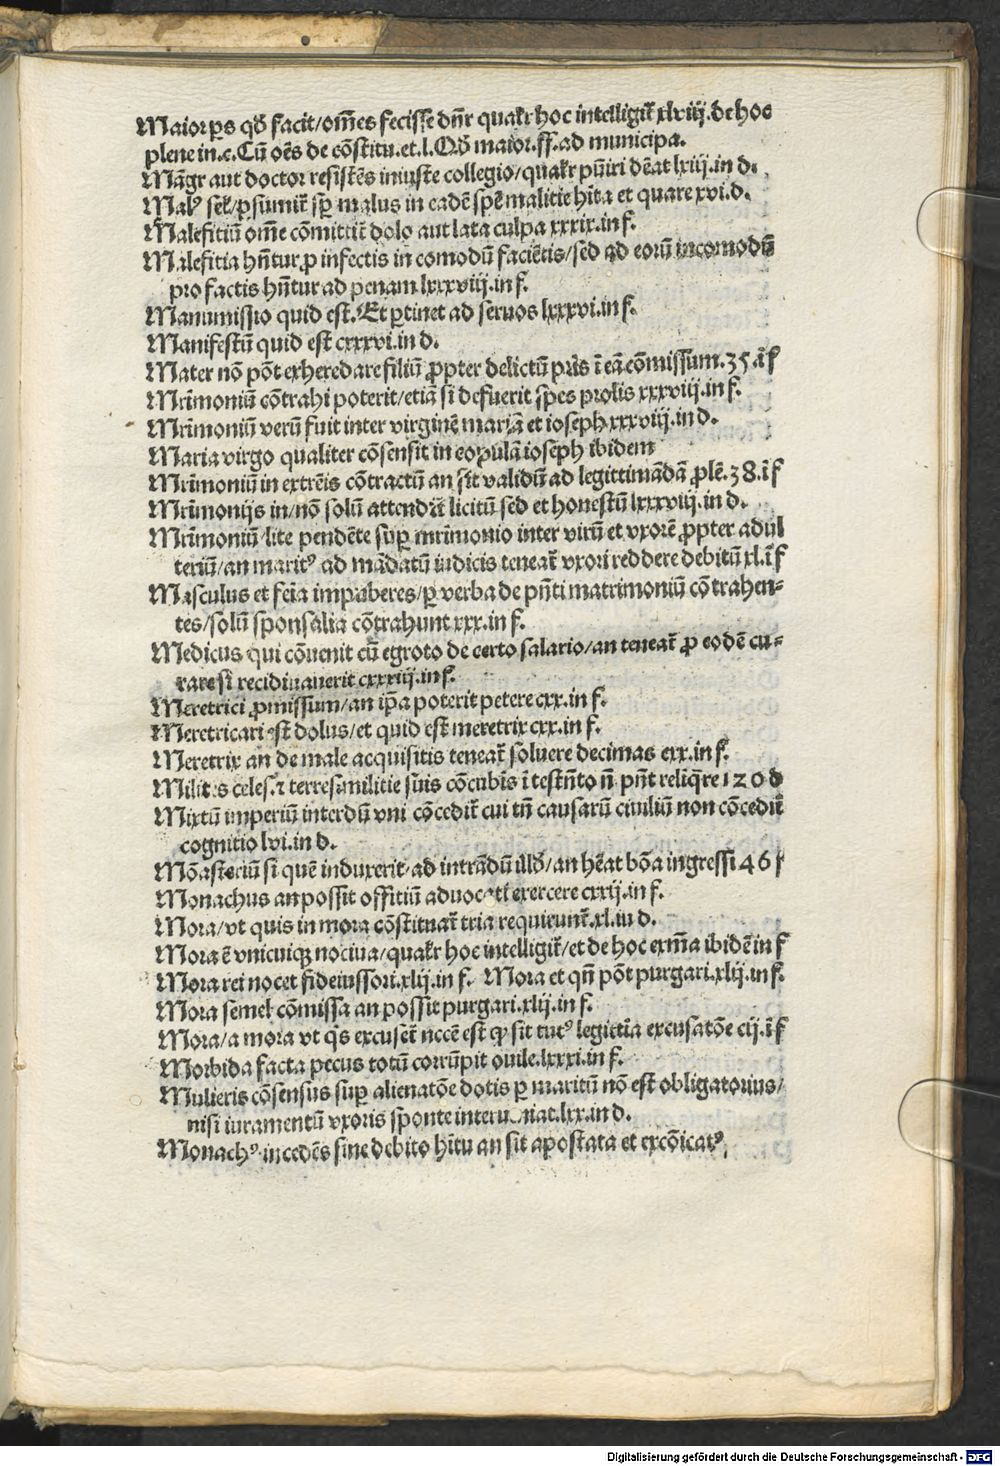 Maior ꝑs qđ facit/om̄es fecisse dn̄r qualr̄ hoc intelligit̄ xlviij.de hoc
plene in.c.Cū oēs de cōstitu.et.l.Qđ maior.ff.ad municipa.
Māgr aut doctor resistēs iniuste collegio/qualr̄ pūiri dēat lxiij.in d.
Malꝰ sel̄/p̄sumit̄ sp̄ malus in eadē spē malitie hita et quare xvi.d.
Malefitiū om̄e cōmittit̄ dolo aut lata culpa xxxix.in f.
Malefitia hn̄tur ꝓ infectis in comodū faciētis/sed ad eorū incomodū
pro factis hn̄tur ad penam lxxxviij.in f.
Manumissio quid est.Et ꝑtinet ad seruos lxxxvi.in f.
Manifestū quid est cxxxvi.in d.
Mater nō pōt exheredare filiū ꝓpter delictū pr̄is ī eā cōmissum.35 ī f
Mr̄imoniū cōtrahi poterit/etiā si defuerit spes prolis xxxviij.in f.
Mr̄imoniū verū fuit inter virginē mariā et ioseph xxxviij.in d.
Maria virgo qualiter cōsensit in copulā ioseph ibidem
Mr̄imoniū in extrēis cōtractū an sit validū ad legittimādā ꝓlē.38.ī f
Mr̄imonijs in/nō solū attendit̄ licitū sed et honestū lxxxviij.in d.
Mr̄imoniū/lite pendēte suꝑ mr̄imonio inter virū et vxorē ꝓpter adul
teriū/an maritꝰ ad mādatū iudicis teneat̄ vxori reddere debitū xl.ī f
Masculus et feīa impuberes/ꝑ verba de pn̄ti matrimoniū cōtrahen-
tes/solū sponsalia cōtrahunt xxx.in f.
Medicus qui cōuenit cū egroto de certo salario/an teneat̄ ꝓ eodē cu-
rare si recidiuauerit cxxxiij.in f.
Meretrici ꝓmissum/an ip̄a poterit petere cxx.in f.
Meretricari est dolus/et quid est meretrix cxx.in f.
Meretrix an de male acquisitis teneat̄ soluere decimas cxx.in f.
Milites celesꝭ ⁊ terresꝭ militie suis cōcubīs ī testn̄to n̄ pn̄t reliq̄re 120 d
Mixtū imperiū interdū vni cōcedit̄ cui tn̄ causarū ciuiliū non cōcedit̄
cognitio lvi.in d.
Mōasteriū si quē induxerit/ad intrādū illđ/an hēat bōa ingressi 46 f
Monachus an possit offitiū aduocati exercere cxxij.in f.
Mora/vt quis in mora cōstituat̄ tria requirunt̄.xl.in d.
Mora ē vnicuiqꝫ nociua/qualr̄ hoc intelligit̄/et de hoc exm̄a ibidē in f
Mora rei nocet fideiussori.xlij.in f. Mora et qn̄ pōt purgari.xlij.in f.
Mora semel cōmissa an possit purgari.xlij.in f.
Mora/a mora vt q̄s excuset̄ nccē est ꝙ sit tutꝰ legittīa excusatōe cij.ī f
Morbida facta pecus totū corrūpit ouile.lxxxi.in f.
Mulieris cōsensus suꝑ alienatōe dotis ꝑ maritū nō est obligatorius/
nisi iuramentū vxoris sponte interueniat.lxx.in d.
Monachꝰ incedēs sine debito hītu an sit apostata et excōicatꝰ,
Digitalisierung gefördert durch die Deutsche Forschungsgemeinschaft - DFG